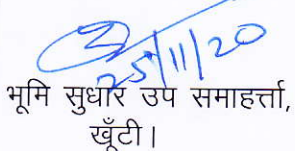 25/11/20
भूमि सुधार उप समाहर्त्ता,
खूँटी।